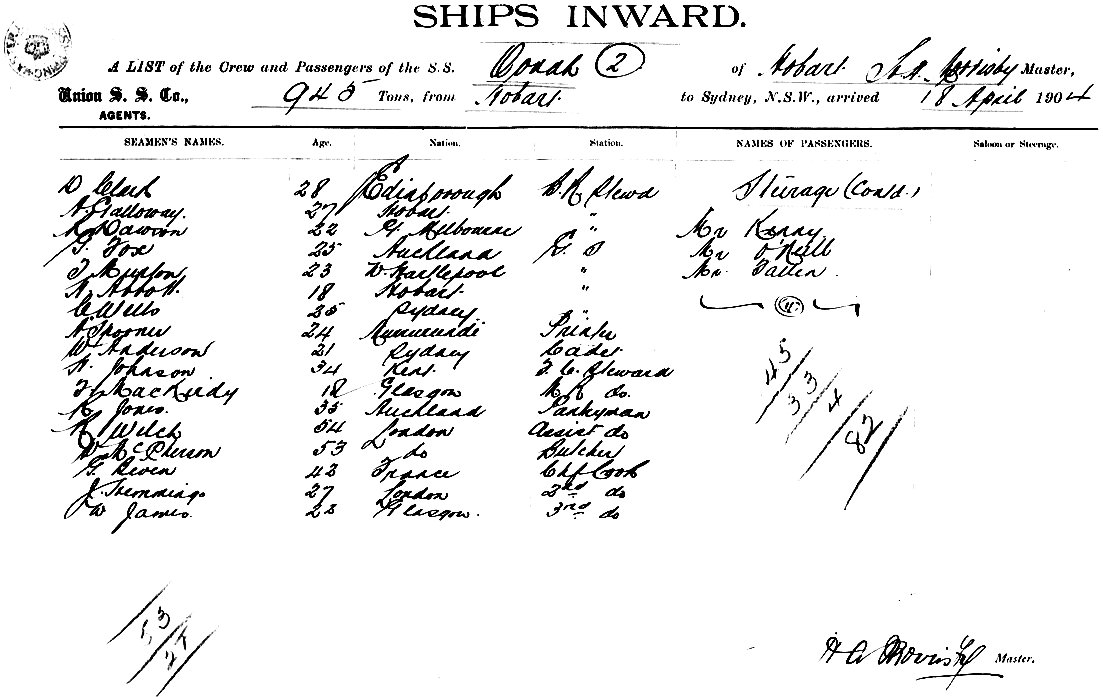 SHIPS INWARD.
A LIST of the Crew and Passengers of the S.S. Oonah (2) of Hobart Master,
Union S. S. Co., 945 Tons, from Hobart to Sydney, N.S.W., arrived 18 April 1904
AGENTS.
SEAMEN'S NAMES. Age. Nation. Station. NAMES OF PASSENGERS. Saloon or Steerage.
D Clark 28 Edinborough Stewd Sturage (Contd.)
A Galloway. 27 Hobart "
Dawson 22 Pt Melbourne " Mr Kenny
G. Fox 25 Auckland G. S Mr O'Neill
23 W Hartlepool " Mr.
Abbott 18 Hobart "
C Wells 25 Sydney "
A Spooner 24 Printer
W Anderson 21 Sydney Cadet
Johnson 34 Kent F. C. Steward
18 Glasgow do
Jones. 35 Auckland Pantryman
Welch 54 London Assist do
McPherson 53 do Butcher
G. 42 France Chf Cook
J. Hemmings 27 London 2nd do
W James 23 Glasgow. 3rd do
45
33
4
82
53
27
H A Master.